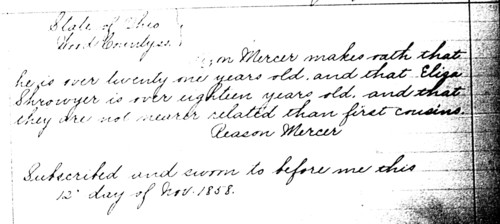 State of Ohio
Wood County ss.
on Mercer makes oath that
he is over twenty one years old, and that Eliza
Shrowyer is over eighteen years old, and that
they are not nearer related than first cousins.
Reason Mercer
Subscribed and sworn to before me this
12 day of Nov. 1858.